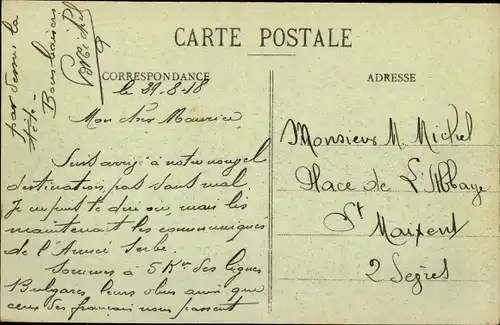 CARTE POSTALE
CORRESPONDANCE
ADRESSE
le 29.8.18
Mon cher Maurice,
Suis arrivé à notre nouvel
destination pas sans mal.
Je ne puis te dire ou, mais lis
maintenant les communiqués
de l'Armée Serbe.
Sommes à 5 Km des lignes
Bulgares leurs obus ainsi que
ceux des francais nous passent
par dessus la
tête.
Bons baisers
Monsieur M. Michel
Place de L'Abbaye
St Maixent
2 Sèvres